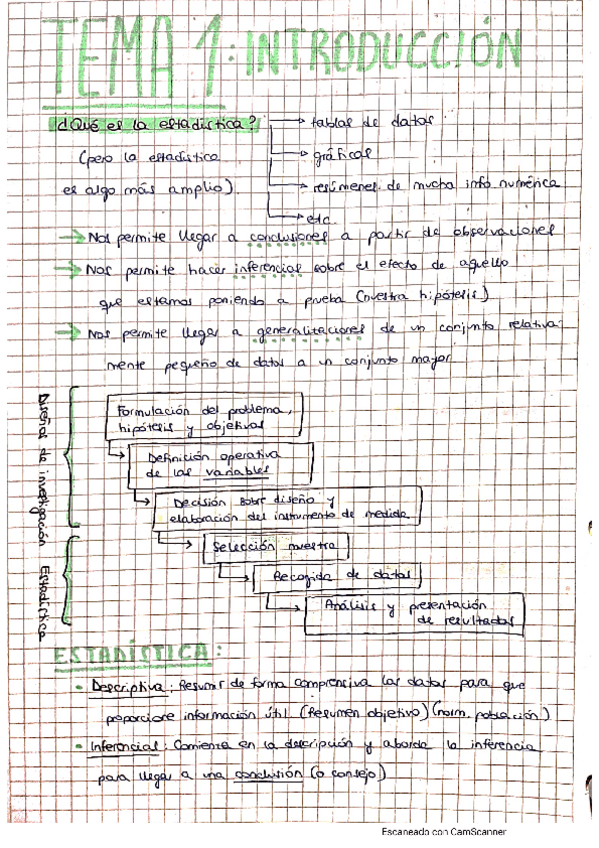 TEMA 1: INTRODUCCIÓN
¿Qué es la estadística?
→ tablas de datos
(pero la estadística
→ gráficos
es algo más amplio).
→ resúmenes de mucha info numérica
→ etc.
→ Nos permite llegar a conclusiones a partir de observaciones
→ Nos permite hacer inferencias sobre el efecto de aquello
que estamos poniendo a prueba (nuestra hipótesis)
→ Nos permite llegar a generalitaciones de un conjunto relativa-
mente pequeño de datos a un conjunto mayor
Diseños de investigación
Estadística
Formulación del problema,
hipótesis y objetivos
Definición operativa
de las variables
Decisión sobre diseño y
elaboración del instrumento de medida
Selección muestra
Recogida de datos
Análisis y presentación
de resultados
ESTADÍSTICA:
• Descriptiva: Resumir de forma comprensiva los datos para que
proporcione información útil. (Resumen objetivo) (norm. población)
• Inferencial: Comienza en la descripción y aborda la inferencia
para llegar a una conclusión (o consejo)
Escaneado con CamScanner